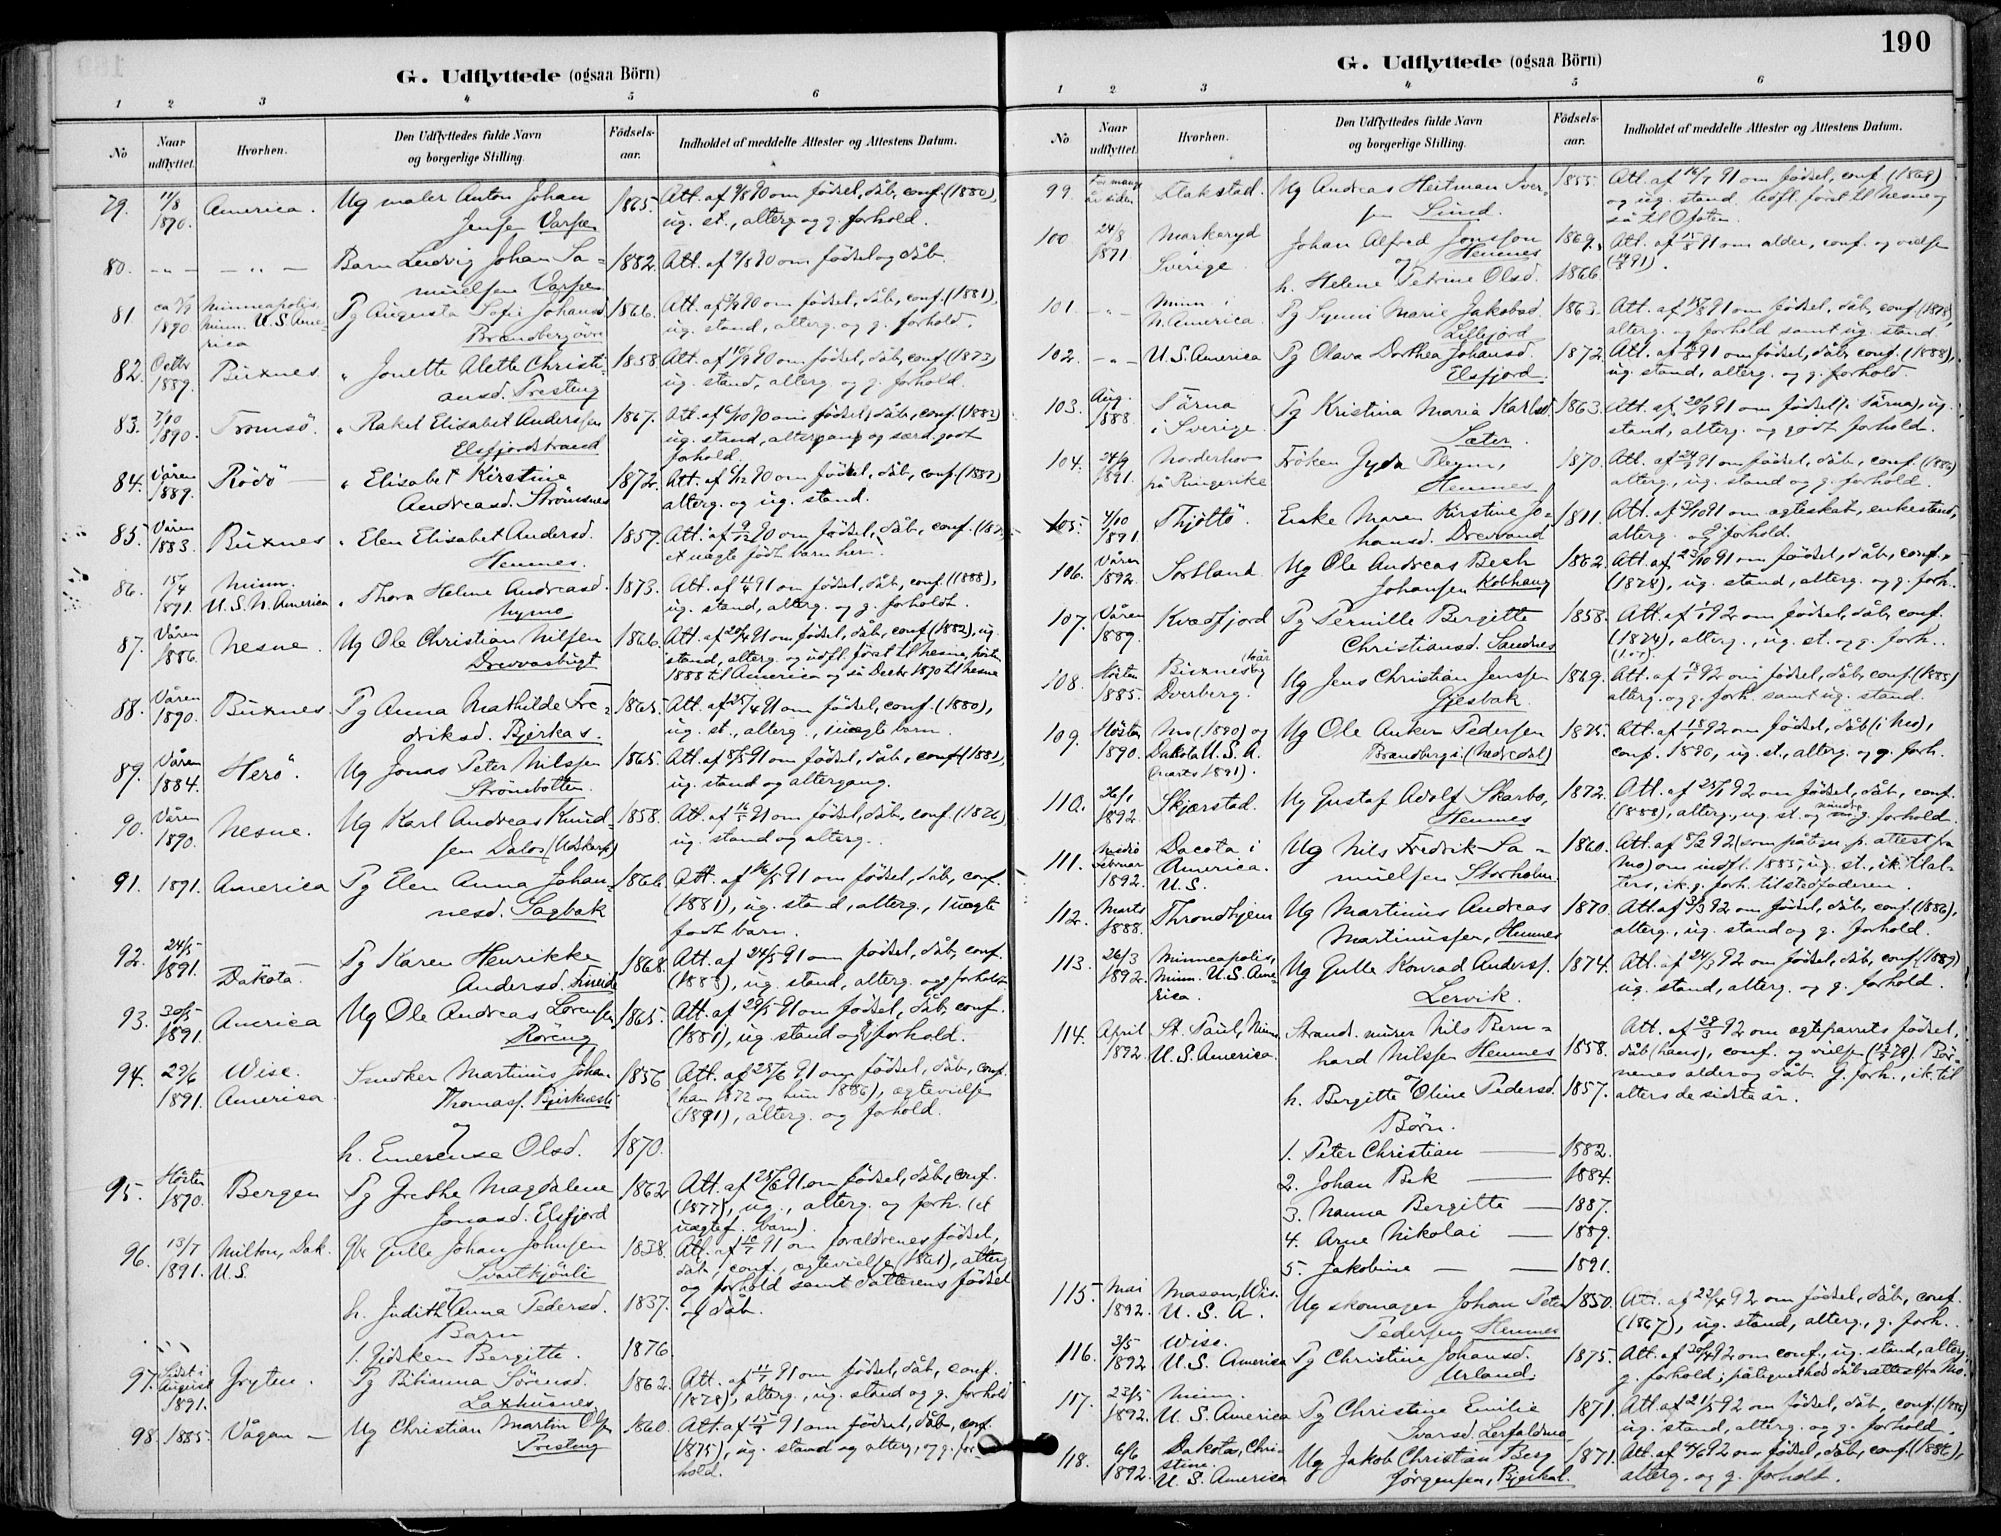 190
G. Udflyttede (ogsaa Börn)
1 2 3 4 5 6
No
Naar udflyttet.
Hvorhen.
Den Udflyttedes fulde Navn
og borgerlige Stilling.
Födsels-
aar.
Indholdet af meddelte Attester og Attestens Datum.
79. 11/8 1890. America. Ug maler Anton Johan 1865. Att. af 9/8 90 om fødsel, dåb, conf. (1880),
Jensen Varpen ug. st., alterg og g. forhold.
80. -"- -"- Barn Ludvig Johan Sa- 1882. Att. af 9/8 90 om fødsel og dåb.
muelsen Varpen
81 1890. Minneapolis, Pg Augusta Sofie Johansd 1866. Att. af 90 om fødsel, dåb, conf. (1881),
Minn. U.S. Ame- Brandbergøvre ug. stand, alterg. og g. forhold.
rica
82. Octbr 1889. Buxnes " Jonette Alette Christi- 1858 Att. af 90 om fødsel, dåb, conf. (1873)
ansd. Presteng ug. stand, alterg. og g. forhold.
83. 7/10 1890. Tromsö. " Rakel Elisabet Anderssen 1867. Att. af 6/10 90 om fødsel, dåb, conf. (1882)
Elsfjordstrand ug. stand, altergang og særd. godt
forhold.
84. Våren 1889. Rödö " Elisabet Kirstine 1872. Att. af 90 om fødsel, dåb, conf. (1887)
Andreasd. Strömsnes alterg. og ug. stand.
85. Våren 1883. Buxnes " Elen Elisabet Andersd. 1857. Att. af 9/12 90 om fødsel, dåb, conf.
Hemnes. et uægte født barn her.
86. 15/4 1891. Minn. " Thora Helene Andreasd. 1873. Att. af 91 om fødsel, dåb, conf. (1888),
U.S. N. America ug. stand, alterg. og g. forholdt.
87. Våren 1886. Nesne. Ug Ole Christian Nilsen 1866. Att. af 20/4 91 om fødsel, dåb, conf (1882), ug.
Drevvasbugt stand, alterg. og udfl. først til Nesne, høsten
1888 til America og så Decbr 1890 til Nesne
88. Våren 1890. Buxnes Pg Anna Mathilde Fre- 1865. Att. af 25/4 91 om fødsel, conf. (1880),
driksd. Bjerkas. ug. st., alterg., 1 uægte barn.
89. Våren 1884. Herö. Ug Jonas Peter Nilssen 1865. Att. af 8/5 91 om fødsel, dåb, conf. (1882),
Strömbotten. ug. stand og altergang.
90. Våren 1890. Nesne. Ug Karl Andreas Knud- 1858. Att. af 91 om fødsel, dåb, conf. (1876)
sen Dalos (Utskarp) ug. stand og alterg.
91. 1891. America Pg Elen Anna Johan- 1866 Att. af 16/5 91 om fødsel, dåb, conf.
nesd. Sagbak (1881), ug. stand, alterg., 1 uægte
født barn.
92. 24/5 1891. Dakota. Pg Karen Henrikke 1868. Att. af 24/5 91 om fødsel, dåb, conf.
Andersd. (1883), ug. stand, alterg. og g forhold
93. 30/5 1891. America Ug Ole Andreas Lorensen 1865. Att. af 29/5 91 om fødsel, dåb, conf.
Röreng (1881), ug. stand og g. forhold.
94. 29/6 1891. Wisc. Snedker Martinus Johan 1856 Att. af 25/6 91 om fødsel, dåb, conf.
America. Thomass. (han 1872 og hun 1886), ægtevielse
og (1891), alterg. og forhold.
h. Emerense Olsd. 1870.
95. Høsten 1890. Bergen Pg Grethe Magdalene 1862 Att. af 25/6 91 om fødsel, dåb, conf.
Jonasd. Elsfjord (1877), ug., alterg. og forh. (et
uægtef. barn).
96. 13/7 1891. Milton, Dak. Gbr Gulle Johan Johnsen 1838. Att. af 91 om forældrenes fødsel,
U.S. Svartkjönli dåb, conf., ægtevielse (1861), alterg
og og forhold samt datterens fødsel
h. Judith Anna Pedersd. 1837. og dåb.
Barn
1. Gidsken Bergitte. 1876
97. Sidst i August 1891. Gryten. Pg Bibianna Sörensd. 1862. Att. af 91 om fødsel, dåb, conf.
Laxhusnes (1878), alterg., ug. stand og g. forhold
98. 1885. Vågan Ug Christian Martin Ols. 1860. Att. af 91 om fødsel, dåb, conf.
Presteng (1875), ug. stand og alterg., og g. for-
hold.
G. Udflyttede (ogsaa Börn)
1 2 3 4 5 6
No
Naar udflyttet.
Hvorhen.
Den Udflyttedes fulde Navn
og borgerlige Stilling.
Födsels-
aar.
Indholdet af meddelte Attester og Attestens Datum.
99. For mange år siden Flakstad. Ug Andreas Heitman Iver- 1855. Att. af 91 om fødsel, conf. (1869)
sen Sund. og ug. stand. Udfl. først til Nesne og
så til Ofoten.
100. 24/8 1891. Markeryd Johan Alfred Jonsson 1869. Att. af 91 om alder, conf. og vielse
Sverige. og Hemnes
h. Helene Petrine Olsd. 1866.
101. -"- Minn i Pg Synni Marie Jakobsd. 1863. Att. af 91 om fødsel, dåb, conf. (1878),
N. America. Lillefjord alterg. og forhold samt ug. stand
102. -"- U.S. America Pg Olava Dorthea Johansd. 1872. Att. af 91 om fødsel, dåb, conf. (1888),
Elsfjord. ug. stand, alterg. og g. forhold
103. Aug. 1888. Tärna Pg Kristina Maria Karlsd. 1863. Att. af 91 om fødsel (i Tärna), ug.
i Sverige. Sæter. stand, alterg. og godt forhold.
104. 24/9 1891. Norderhov Fröken Gyda Pleym, 1870. Att. af 91 om fødsel, dåb, conf. (1886)
på Ringerike Hemnes alterg., ug. stand og g. forhold.
105. 4/10 1891. Thjöttö. Enke Maren Kirstine Jo- 1811. Att. af 91 om ægteskab, enkestand,
hansd. Drevvand alterg. og forhold.
106. Våren 1892. Sortland. Ug Ole Andreas Bech 1862. Att. af 23/10 91 om fødsel, dåb, conf.
Johansen Kobhaug (1878), ug. stand, alterg. og g. forh.
107. Våren 1889. Kvædfjord Pg Pernille Bergitte 1858. Att. af 92 om fødsel, dåb, conf.
Christiansd. Sandnes (1874), alterg., ug. st. og g. forh.
108. Høsten 1885. Buxnes Ug Jens Christian Jenssen 1869. Att. af 92 om fødsel, dåb, conf. (1885)
Dverberg. Gjesbak. alterg. og g. forh. samt ug. stand.
109. Høsten 1890. Mo (1890) og Ug Ole Anker Pedersen 1875. Att. af 18/1 92 om fødsel, dåb (i Mo),
Dakota U.S.A. Brandberg i. (Nedredal) conf. 1890, ug. st., alterg. og g. forh.
(marts 1891).
110. 26/1 1892. Skjerstad. Ug Gustaf Adolf Skarbo, 1872. Att. af 25/1 92 om fødsel, dåb, conf.
Hemnes (1888), alterg., ug. st. og mindre g. forhold.
111. Medio Februar 1892. Dacota i Ug Nils Fredrik Sa- 1860. Att. af 8/2 92 (som påtegn. p. attest fra
America. muelsen Storholm. Mo) om indfl. 1885, ug. st., ik. til al-
U.S. ters, ik. g. forh. til stedfaderen.
112. Marts 1888. Throndhjem Ug Martinus Andreas 1870. Att. af 92 om fødsel, dåb, conf. (1886),
Martinussen, Hemnes alterg., ug. stand og g. forhold.
113. 26/3 1892. Minneapolis, Ug Gulle Konrad Anderss. 1874. Att. af 24/3 92 om fødsel, dåb, conf. (1889)
Minn. U.S. Ame- Lervik. ug. stand, alterg. og g. forhold.
rica.
114. April 1892. St. Paul, Minn Strands. murer Nils Bern- Att. af 29/3 92 om ægteparrets fødsel,
U.S. America. hard Nilssen Hemnes 1858. dåb (hans), conf. og vielse. Bør-
og nenes alder og dåb. G. forh., ik. til
h. Bergitte Oline Pedersd. 1857. alters de sidste år.
Børn.
1. Peter Christian 1882.
2. Johan Bek 1884.
3. Nanna Bergitte 1887.
4. Arne Nikolai 1889.
5. Jakobine 1891.
115. Mai 1892. Mason, Wis. Ug skomager Johan Peter 1850. Att. af 22/4 92 om fødsel, dåb, conf.
U.S.A. Pedersen Hemnes (1867), ug. stand, alterg., g. forh.
116. 3/5 1892 Wisc. Pg Christine Johansd. 1875. Att. af 92 om conf., ug. stand, alterg.
U.S. America Urland. g. forhold; påtegnet hds dåbsattest fra Mo.
117. 23/5 1892. Minn. Pg Christine Emilie 1871. Att. af 21/5 92 om fødsel, dåb, conf. (1886)
U.S. America Ivarsd. ug. stand, alterg. og g. forhold.
118. 6/6 1892. Dakota, Chri- Ug Jakob Christian Berg 1871. Att. af 4/6 92 om fødsel, dåb, conf. (1886),
stine. Jørgensen, alterg. og g. forholdt.
U.S. America